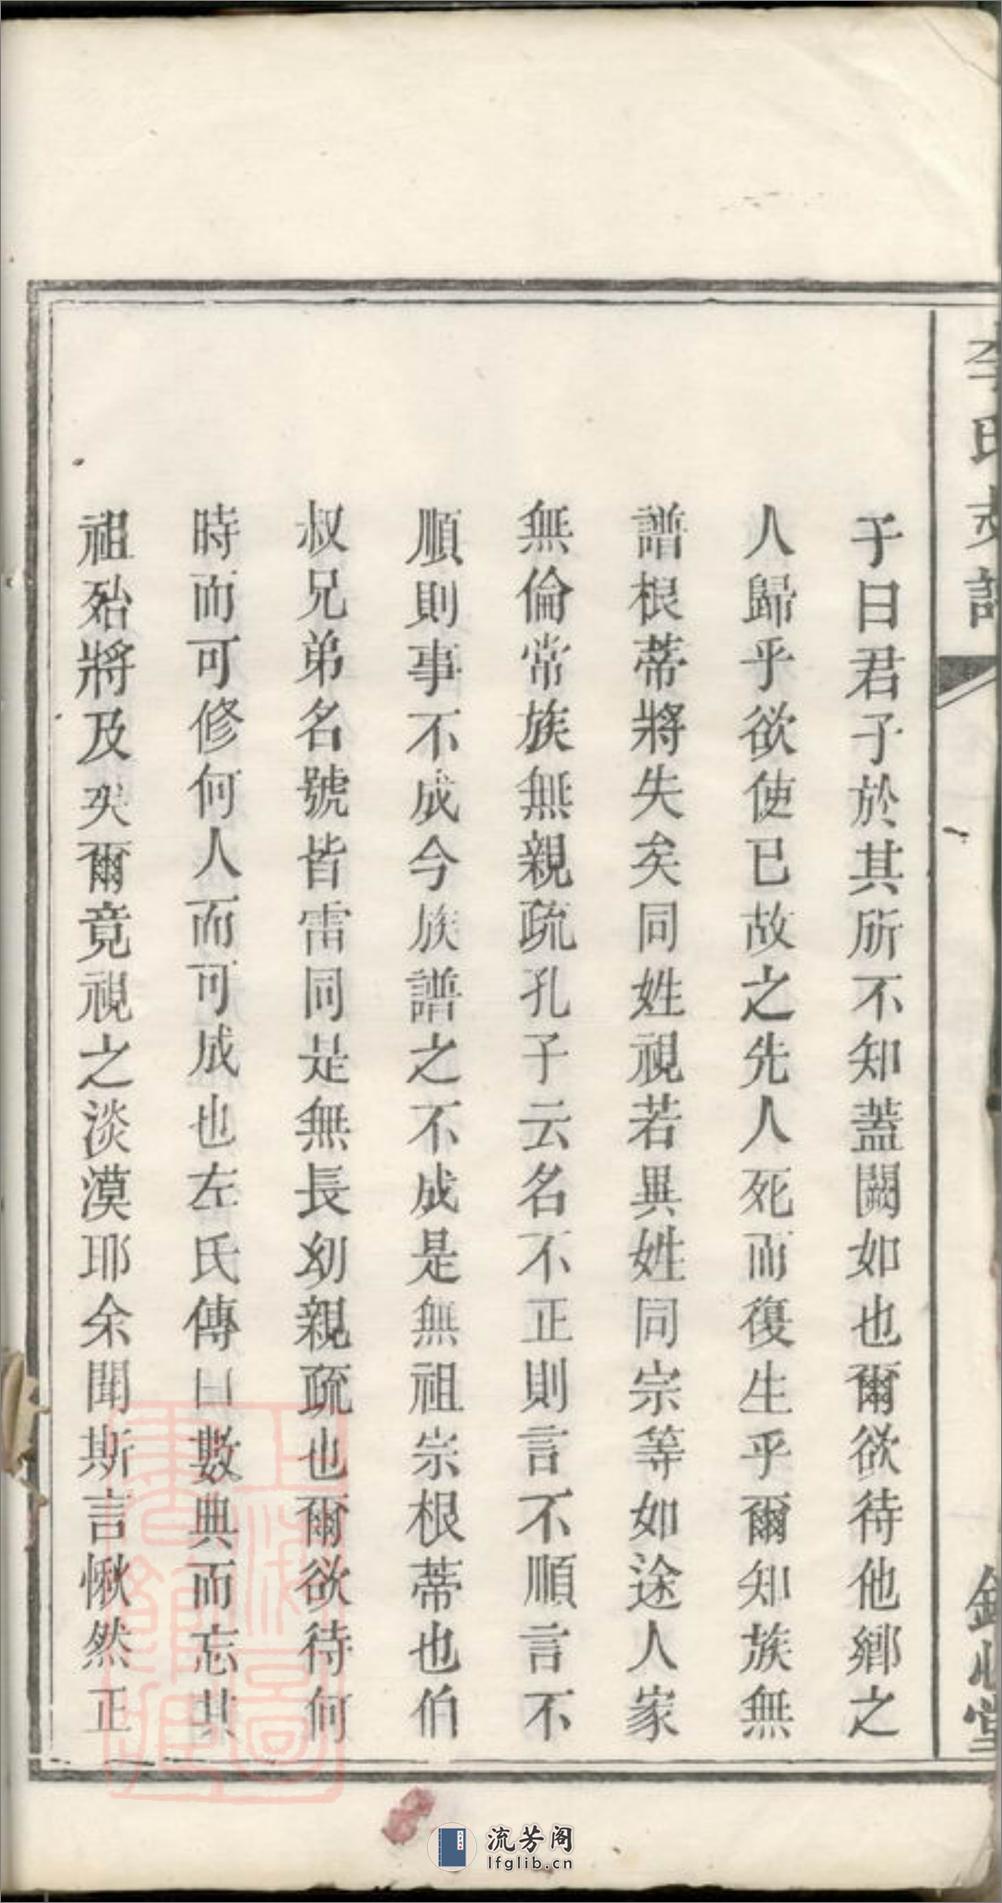 李氏支譜
子曰君子於其所不知蓋闕如也爾欲待他鄉之
人歸乎欲使已故之先人死而復生乎爾知族無
譜根蒂將失矣同姓視若異姓同宗等如途人家
無倫常族無親疏孔子云名不正則言不順言不
順則事不成今族譜之不成是無祖宗根蒂也伯
叔兄弟名號皆雷同是無長幼親疏也爾欲待何
時而可修何人而可成也左氏傳曰數典而忘其
祖殆將及矣爾竟視之淡漠耶余聞斯言愀然正
上海圖書館藏
流芳阁
lfglib.cn